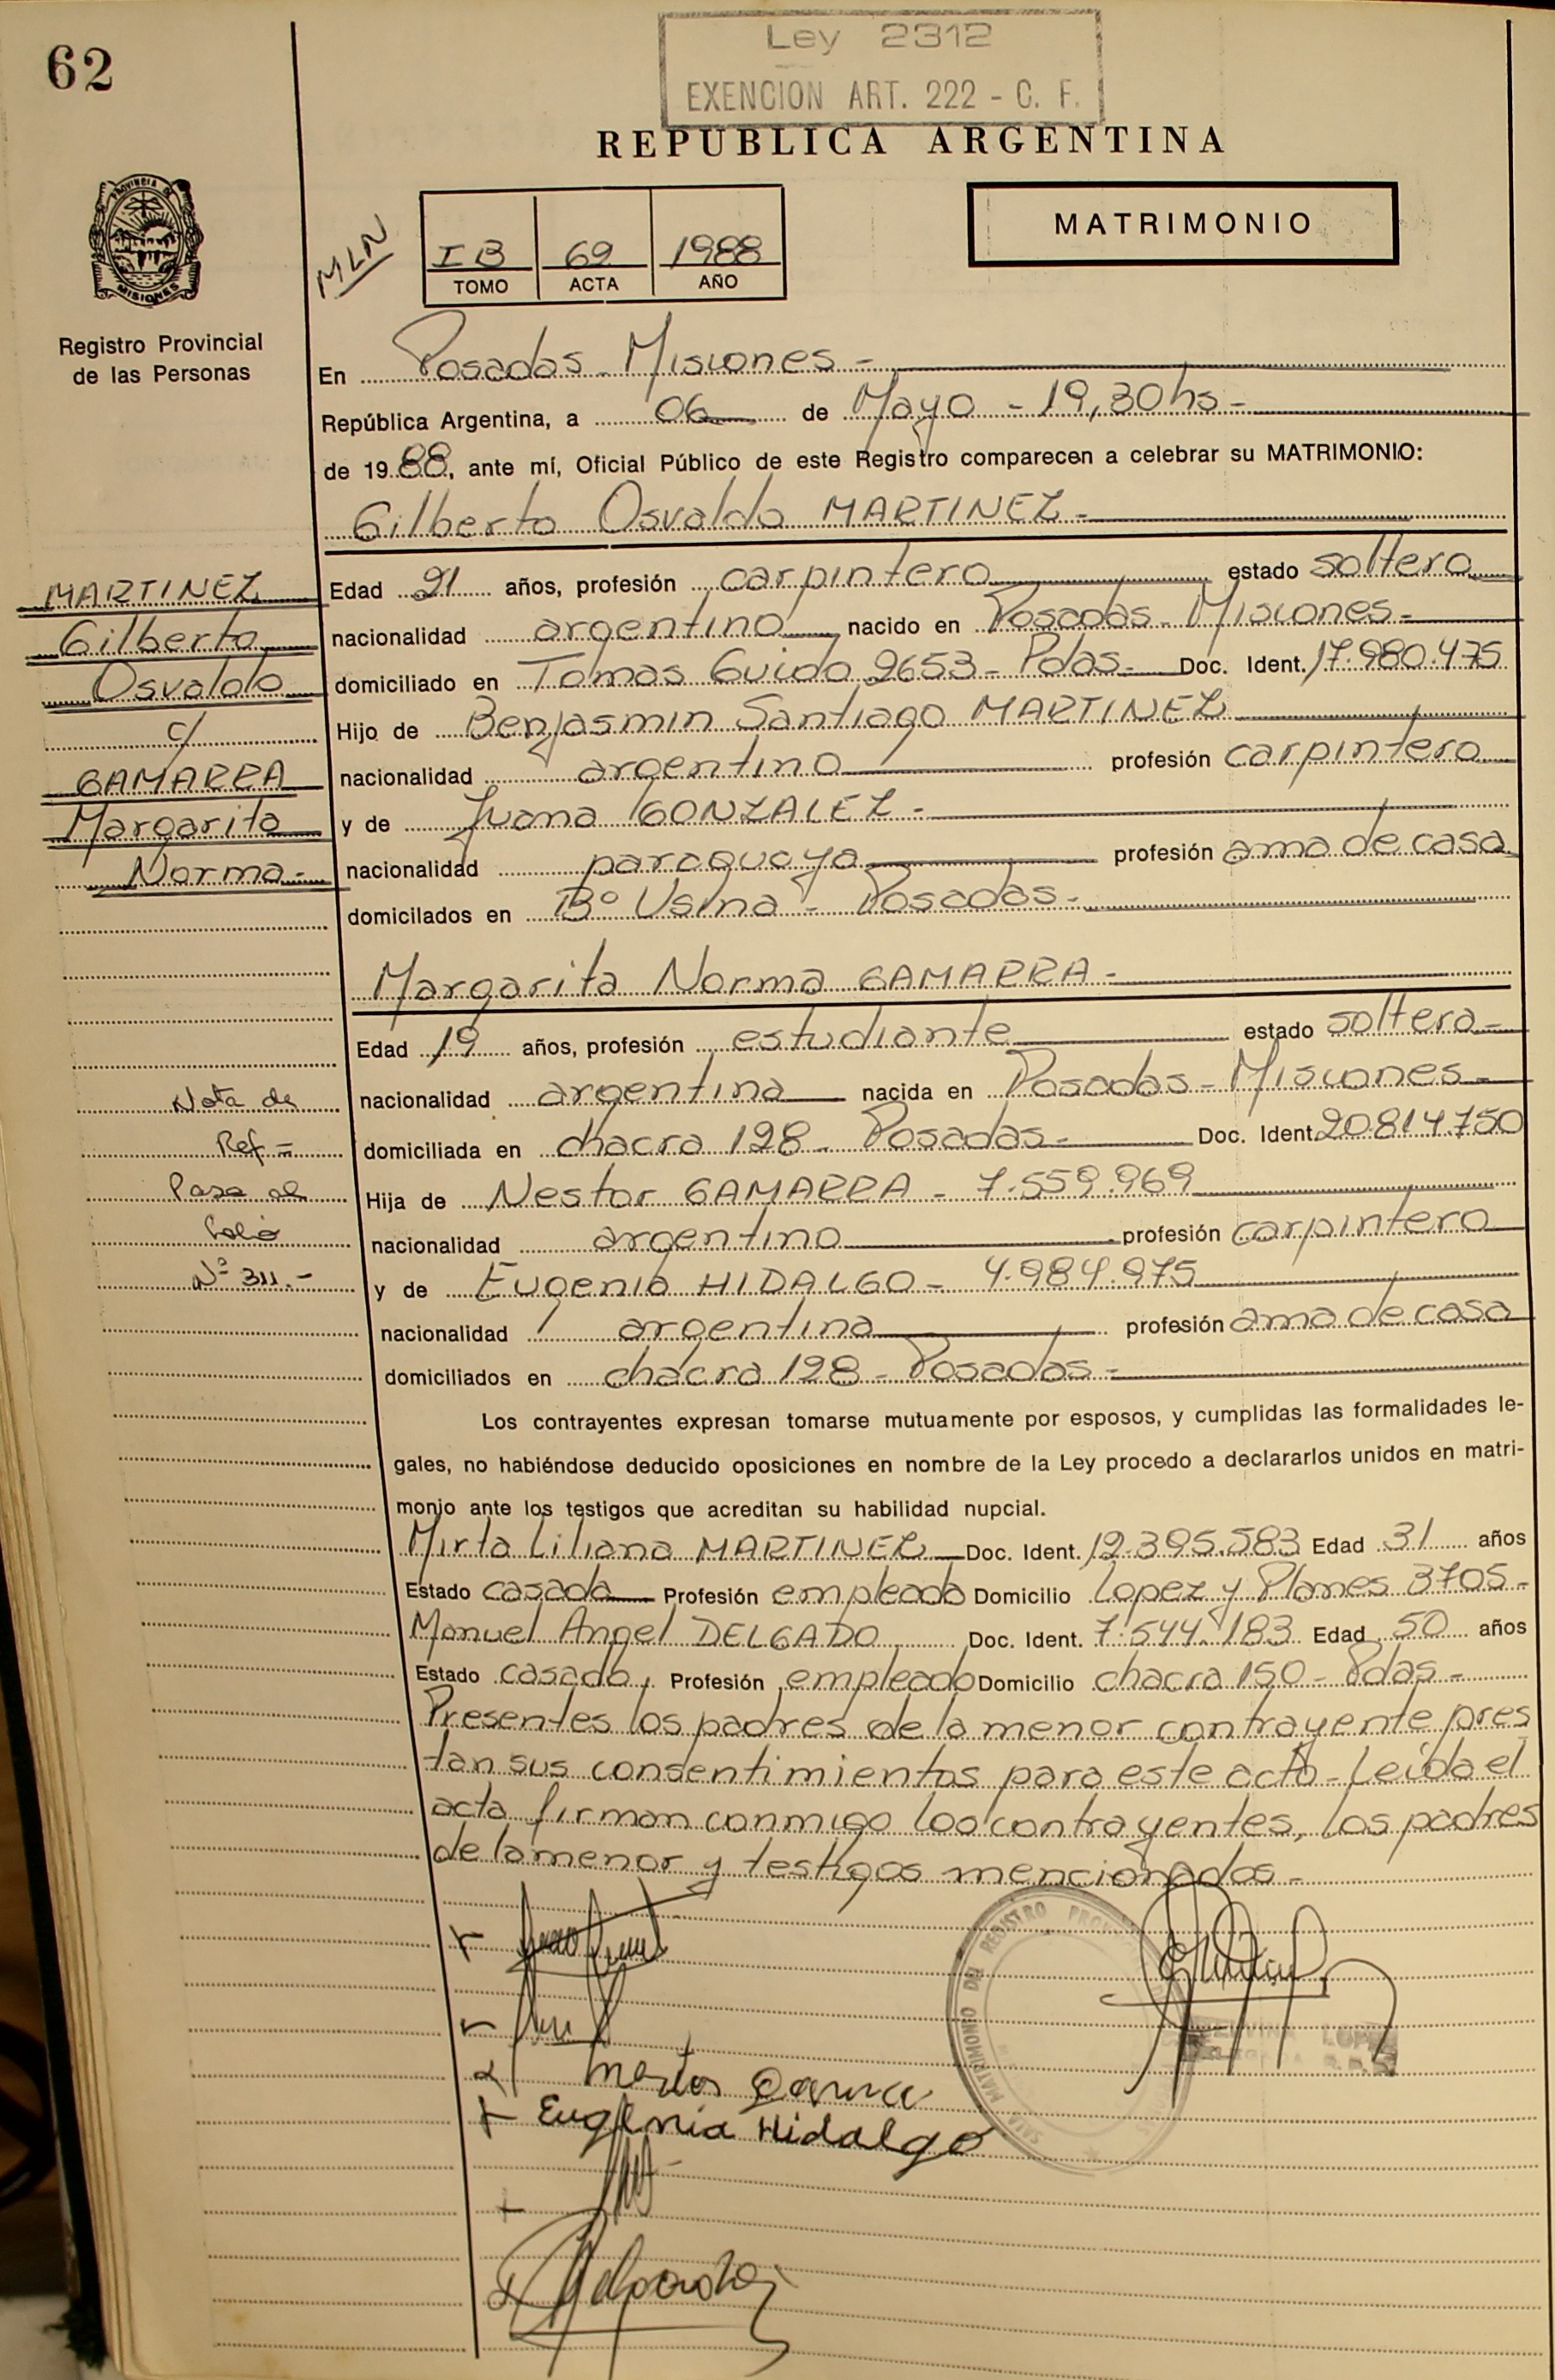 62
Ley 2312
EXENCION ART. 222 - C. F.
REPUBLICA ARGENTINA
PROVINCIA DE
MISIONES
Registro Provincial
de las Personas
MLN
I B 69 1988
TOMO ACTA AÑO
MATRIMONIO
En Posadas - Misiones -
República Argentina, a 06 de Mayo - 19,30hs -
de 1988, ante mí, Oficial Público de este Registro comparecen a celebrar su MATRIMONIO:
Gilberto Osvaldo MARTINEZ -
MARTINEZ
Gilberto
Osvaldo
c/
GAMARRA
Margarita
Norma -
Edad 21 años, profesión carpintero estado soltero
nacionalidad argentino nacido en Posadas - Misiones -
domiciliado en Tomas Guido 2653 - Pdas - Doc. Ident. 17.980.475
Hijo de Benjasmin Santiago MARTINEZ
nacionalidad argentino profesión carpintero
y de Juana GONZALEZ -
nacionalidad paraguaya profesión ama de casa
domicilados en B° Usina - Posadas -
Margarita Norma GAMARRA -
Edad 19 años, profesión estudiante estado soltera -
nacionalidad argentina nacida en Posadas - Misiones -
domiciliada en chacra 128 - Posadas - Doc. Ident. 20.814.750
Hija de Nestor GAMARRA - 7.559.969
nacionalidad argentino profesión carpintero
y de Eugenia HIDALGO - 4.984.975
nacionalidad argentina profesión ama de casa
domiciliados en chacra 128 - Posadas -
Nota de
Ref =
Pasa al
Folio
N° 311.-
Los contrayentes expresan tomarse mutuamente por esposos, y cumplidas las formalidades le-
gales, no habiéndose deducido oposiciones en nombre de la Ley procedo a declararlos unidos en matri-
monio ante los testigos que acreditan su habilidad nupcial.
Mirta Liliana MARTINEZ Doc. Ident. 12.395.583 Edad 31 años
Estado casada Profesión empleada Domicilio Lopez y Planes 3705 -
Manuel Angel DELGADO Doc. Ident. 7.544.183 Edad 50 años
Estado casado Profesión empleado Domicilio chacra 150 - Pdas -
Presentes los padres de la menor contrayente pres
tan sus consentimientos para este acto - Leida el
acta firman conmigo los contrayentes, los padres
de la menor y testigos mencionados -
Eugenia Hidalgo